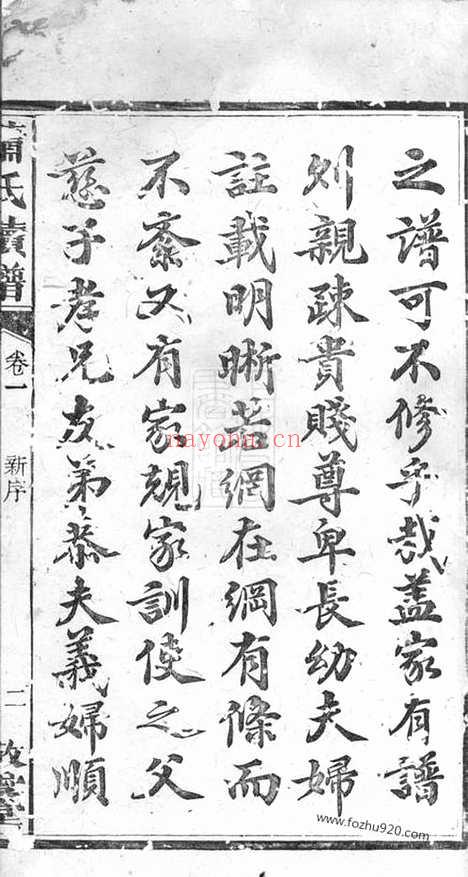 之譜可不修乎哉盖家有譜
則親疎貴賤尊卑長幼夫婦
註載明晰若網在綱有條而
不紊又有家規家訓使之父
慈子孝兄友弟恭夫義婦順
蕭氏續譜
卷一
新序
二
nayona.cn
www.fozhu920.com